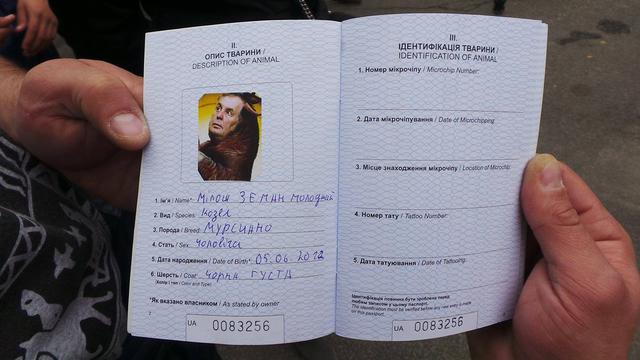 II.
ОПИС ТВАРИНИ /
DESCRIPTION OF ANIMAL
1. Ім'я / Name*: Мілош ЗЕМАН молодший
2. Вид / Species: козел
3. Порода / Breed: МУРСИАНО
4. Стать / Sex: чоловіча
5. Дата народження / Date of Birth*: 05.06.2012
6. Шерсть / Coat: чорна ГУСТА
(Колір і тип / Color and Type)
*Як вказано власником / As stated by owner
UA 0083256
III.
ІДЕНТИФІКАЦІЯ ТВАРИНИ /
IDENTIFICATION OF ANIMAL
1. Номер мікрочіпу / Microchip Number:
2. Дата мікрочіпування / Date of Microchipping
3. Місце знаходження мікрочіпу / Location of Microchip
4. Номер тату / Tattoo Number:
5. Дата татуювання / Date of Tattooing:
Ідентифікація повинна бути зроблена перед
любим записом у цьому паспорті.
The identification must be verified before any new entry is made
on this passport.
UA 0083256